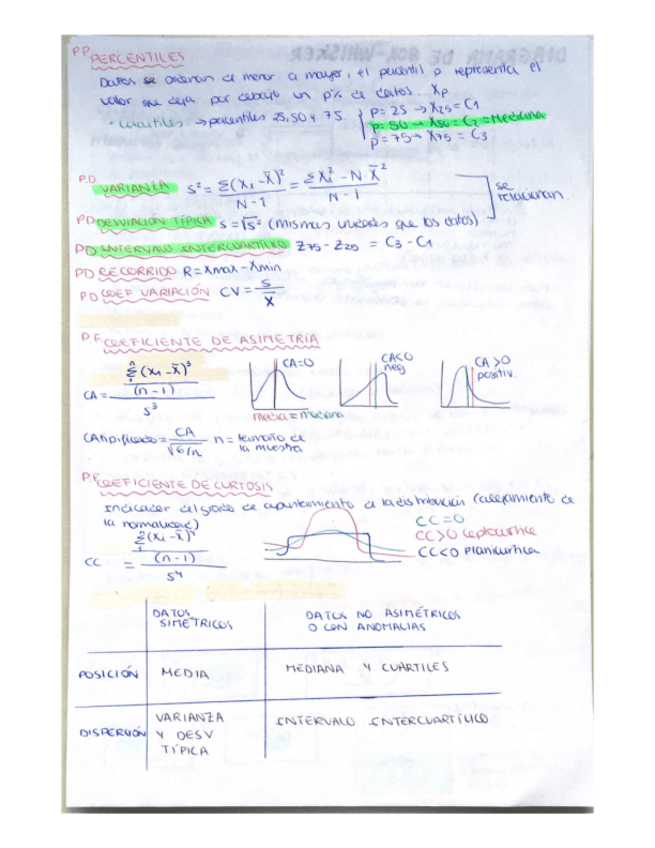 PP PERCENTILES
Datos se ordenan de menor a mayor, el percentil p representa el
valor que deja por debajo un p% de datos. Xp
· cuartiles → percentiles 25, 50 y 75.
p = 25 → X25 = C1
p = 50 → X50 = C2 = Mediana
p = 75 → X75 = C3
PD VARIANZA S² = Σ(Xi - X̄)² / N-1 = ΣXi² - N·X̄² / N-1
se relacionan.
PD DESVIACIÓN TÍPICA S = √S² (mismas unidades que los datos)
PD INTERVALO INTERCUARTÍLICO Z75 - Z25 = C3 - C1
PD RECORRIDO R = Xmax - Xmin
PD COEF VARIACIÓN CV = S / X̄
PF COEFICIENTE DE ASIMETRÍA
CA = Σ(xi - x̄)³ / (n-1) / S³
CA=0
CA<0 neg
CA>0 positiv.
media = mediana
CAtipificado = CA / √6/n n = tamaño de
la muestra
PF COEFICIENTE DE CURTOSIS
Indicador del grado de apuntamiento de la distribución (alejamiento de
la normalidad)
CC = Σ(xi - x̄)⁴ / (n-1) / S⁴
CC=0
CC>0 leptocúrtica
CC<0 planicúrtica
DATOS SIMÉTRICOS
DATOS NO ASIMÉTRICOS O CON ANOMALIAS
POSICIÓN MEDIA MEDIANA Y CUARTILES
DISPERSIÓN VARIANZA Y DESV TÍPICA INTERVALO INTERCUARTÍLICO